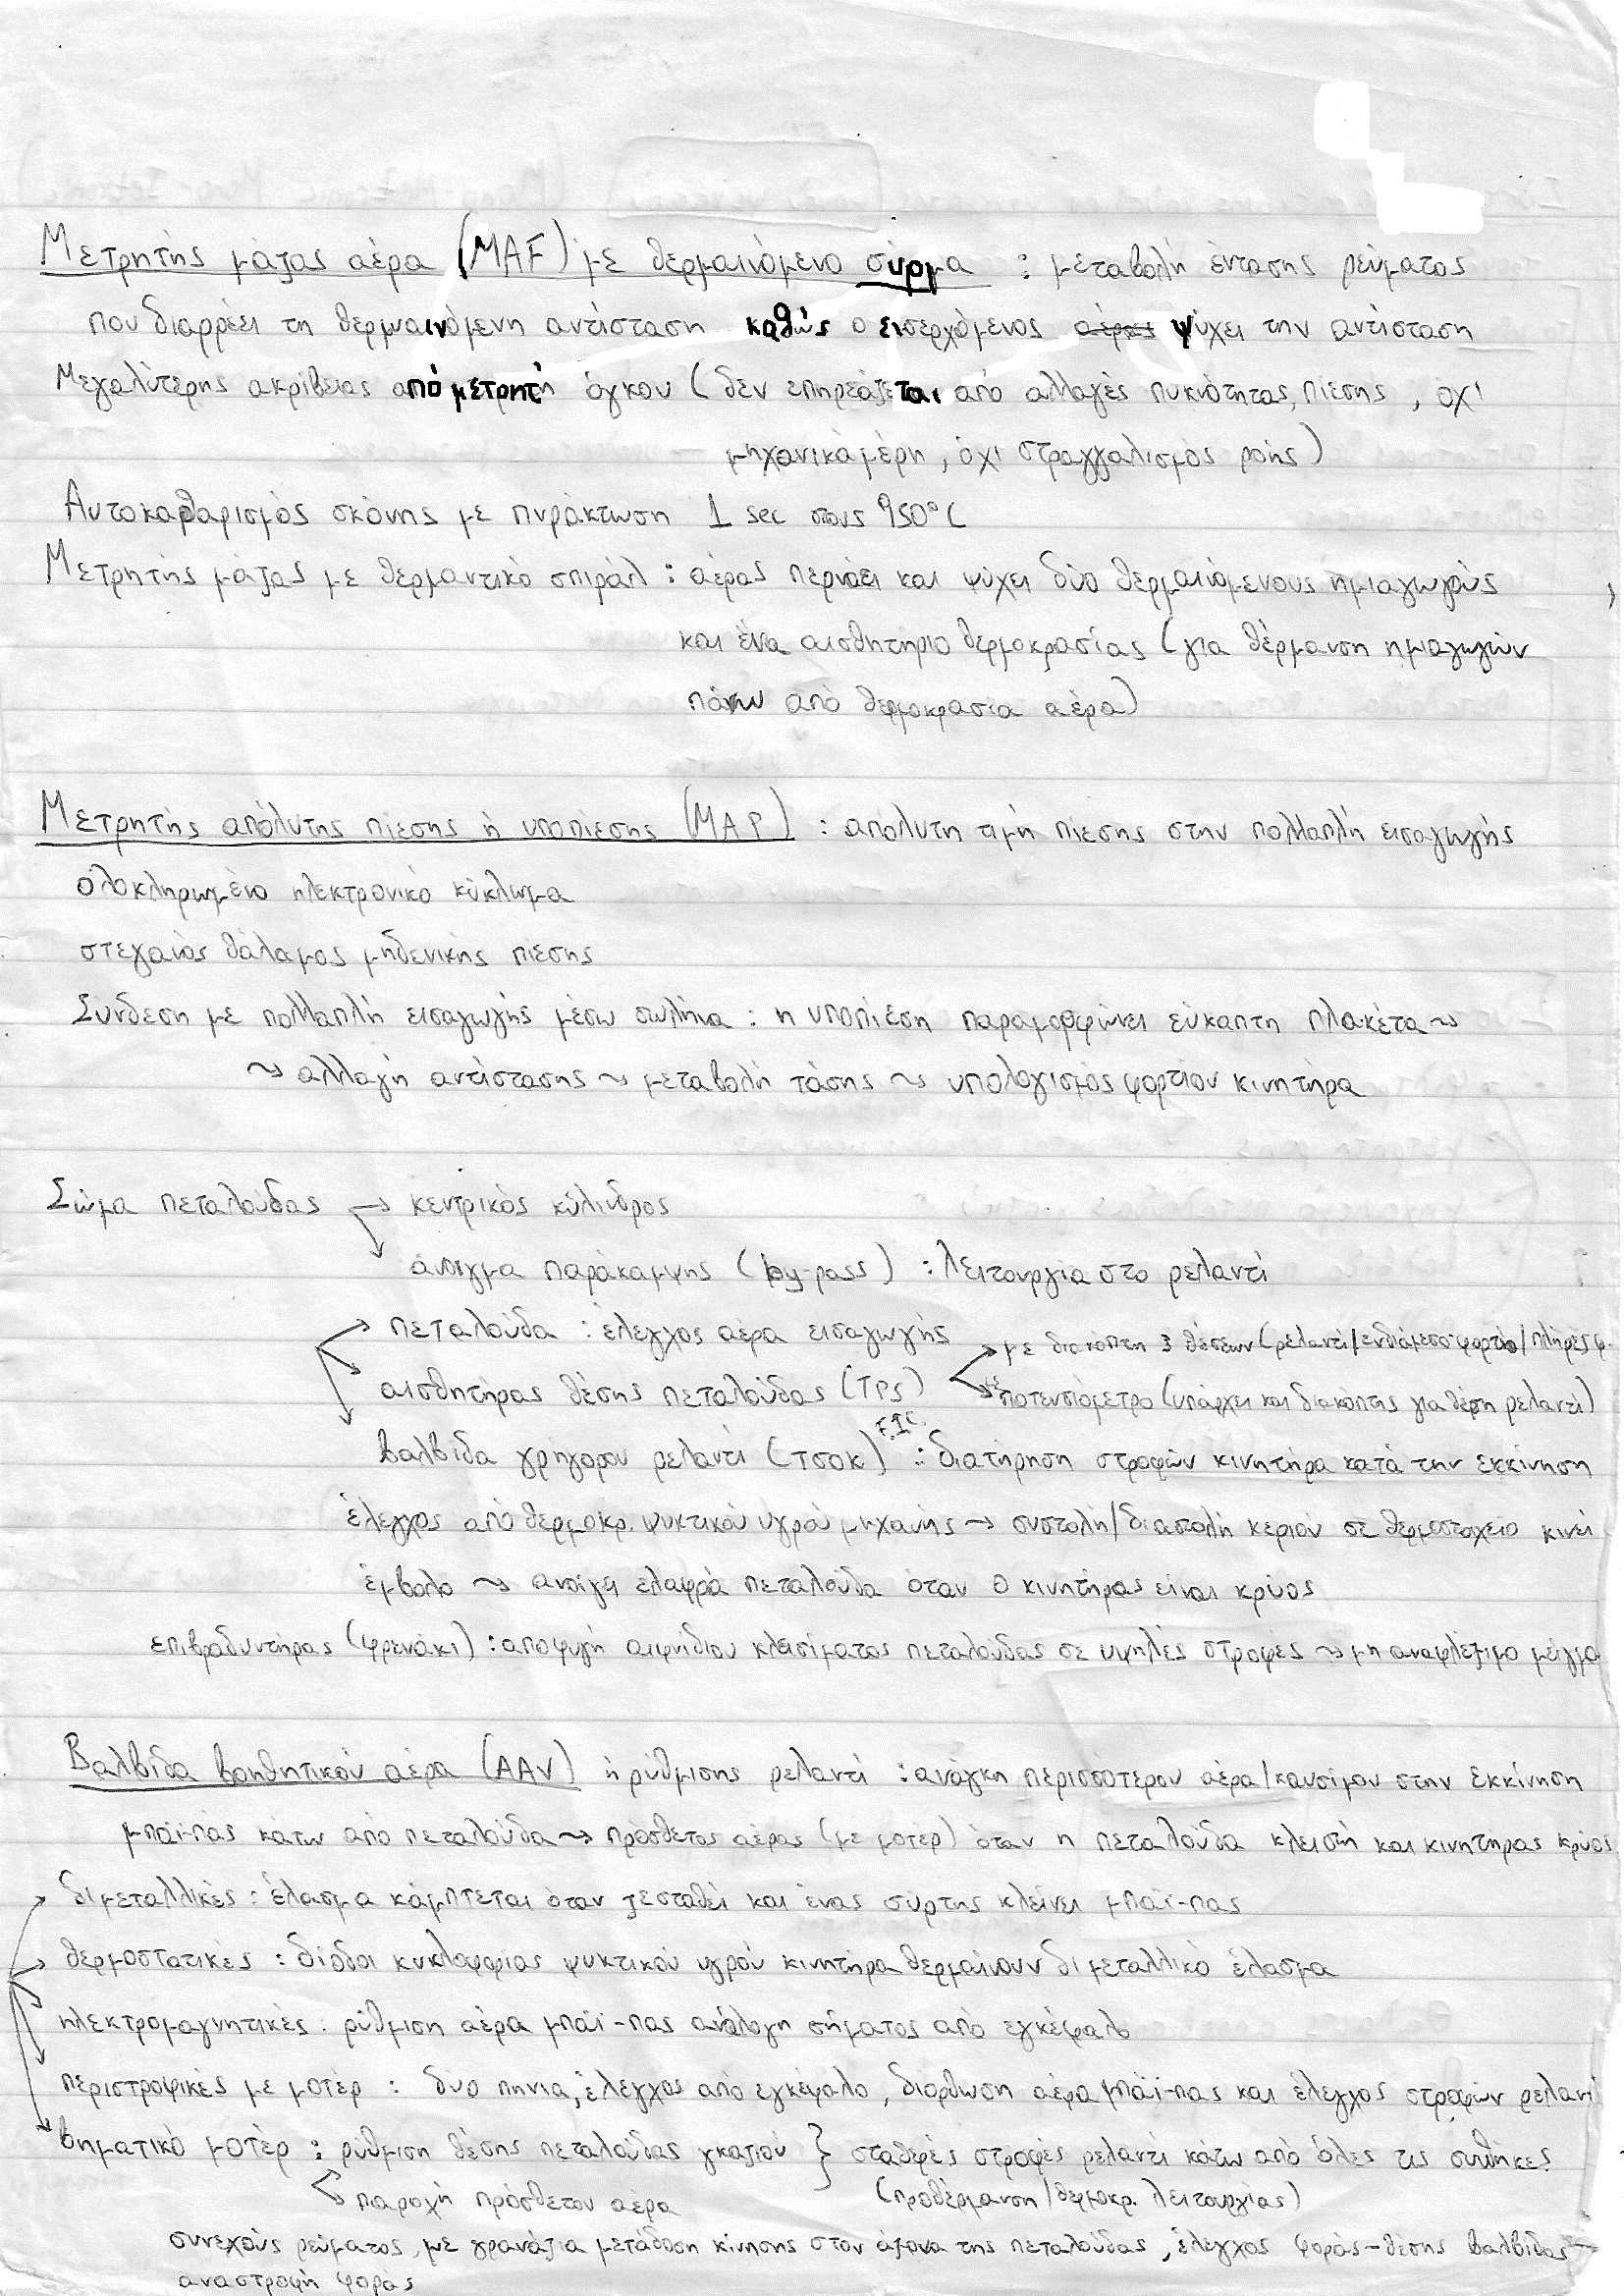 Μετρητής μάζας αέρα (MAF) με θερμαινόμενο σύρμα : μεταβολή έντασης ρεύματος
που διαρρέει τη θερμαινόμενη αντίσταση καθώς ο εισερχόμενος αέρας ψύχει την αντίσταση
Μεγαλύτερης ακρίβειας από μετρητή όγκου (δεν επηρεάζεται από αλλαγές πυκνότητας, πίεσης, όχι
μηχανικά μέρη, όχι στραγγαλισμός ροής)
Αυτοκαθαρισμός σκόνης με πυράκτωση 1 sec στους 950°C
Μετρητής μάζας με θερμαντικό σπιράλ : αέρας περνάει και ψύχει δύο θερμαινόμενους ημιαγωγούς
και ένα αισθητήριο θερμοκρασίας (για θέρμανση ημιαγωγών
πάνω από θερμοκρασία αέρα)
Μετρητής απόλυτης πίεσης ή υποπίεσης (MAP) : απόλυτη τιμή πίεσης στην πολλαπλή εισαγωγής
ολοκληρωμένο ηλεκτρονικό κύκλωμα
στεγανός θάλαμος μηδενικής πίεσης
Σύνδεση με πολλαπλή εισαγωγής μέσω σωλήνα : η υποπίεση παραμορφώνει εύκαπτη πλακέτα ⤳
⤳ αλλαγή αντίστασης ⤳ μεταβολή τάσης ⤳ υπολογισμός φορτίου κινητήρα
Σώμα πεταλούδας → κεντρικός κύλινδρος
άνοιγμα παράκαμψης (by-pass) : λειτουργία στο ρελαντί
πεταλούδα : έλεγχος αέρα εισαγωγής
με διακόπτη 3 θέσεων (ρελαντί/ενδιάμεσο φορτίο/πλήρες φ.
αισθητήρας θέσης πεταλούδας (TPS)
με ποτενσιόμετρο (υπάρχει και διακόπτης για θέση ρελαντί)
F.I.C.
βαλβίδα γρήγορου ρελαντί (τσοκ) : διατήρηση στροφών κινητήρα κατά την εκκίνηση
έλεγχος από θερμοκρ. ψυκτικού υγρού μηχανής → συστολή/διαστολή κεριού σε θερμοστοχείο κινεί
έμβολο ⤳ ανοίγει ελαφρά πεταλούδα όταν ο κινητήρας είναι κρύος
επιβραδυντήρας (φρενάκι) : αποφυγή αιφνίδιου κλεισίματος πεταλούδας σε υψηλές στροφές ⤳ μη αναφλέξιμο μείγμα
Βαλβίδα βοηθητικού αέρα (AAV) ή ρύθμισης ρελαντί : ανάγκη περισσότερου αέρα/καυσίμου στην εκκίνηση
μπάι-πας κάτω από πεταλούδα ⤳ πρόσθετος αέρας (με μοτέρ) όταν η πεταλούδα κλειστή και κινητήρας κρύος
διμεταλλικές : έλασμα κάμπτεται όταν ζεσταθεί και ένας σύρτης κλείνει μπάι-πας
θερμοστατικές : δίοδοι κυκλοφορίας ψυκτικού υγρού κινητήρα θερμαίνουν διμεταλλικό έλασμα
ηλεκτρομαγνητικές : ρύθμιση αέρα μπάι-πας ανάλογη σήματος από εγκέφαλο
περιστροφικές με μοτέρ : δύο πηνία, έλεγχος από εγκέφαλο, διόρθωση αέρα μπάι-πας και έλεγχος στροφών ρελαντί
βηματικό μοτέρ : ρύθμιση θέσης πεταλούδας γκαζιού } σταθερές στροφές ρελαντί κάτω από όλες τις συνθήκες
παροχή πρόσθετου αέρα (προθέρμανση/θερμοκρ. λειτουργίας)
συνεχούς ρεύματος, με γρανάζια μετάδοση κίνησης στον άξονα της πεταλούδας, έλεγχος φοράς-θέσης βαλβίδας →
αναστροφή φοράς